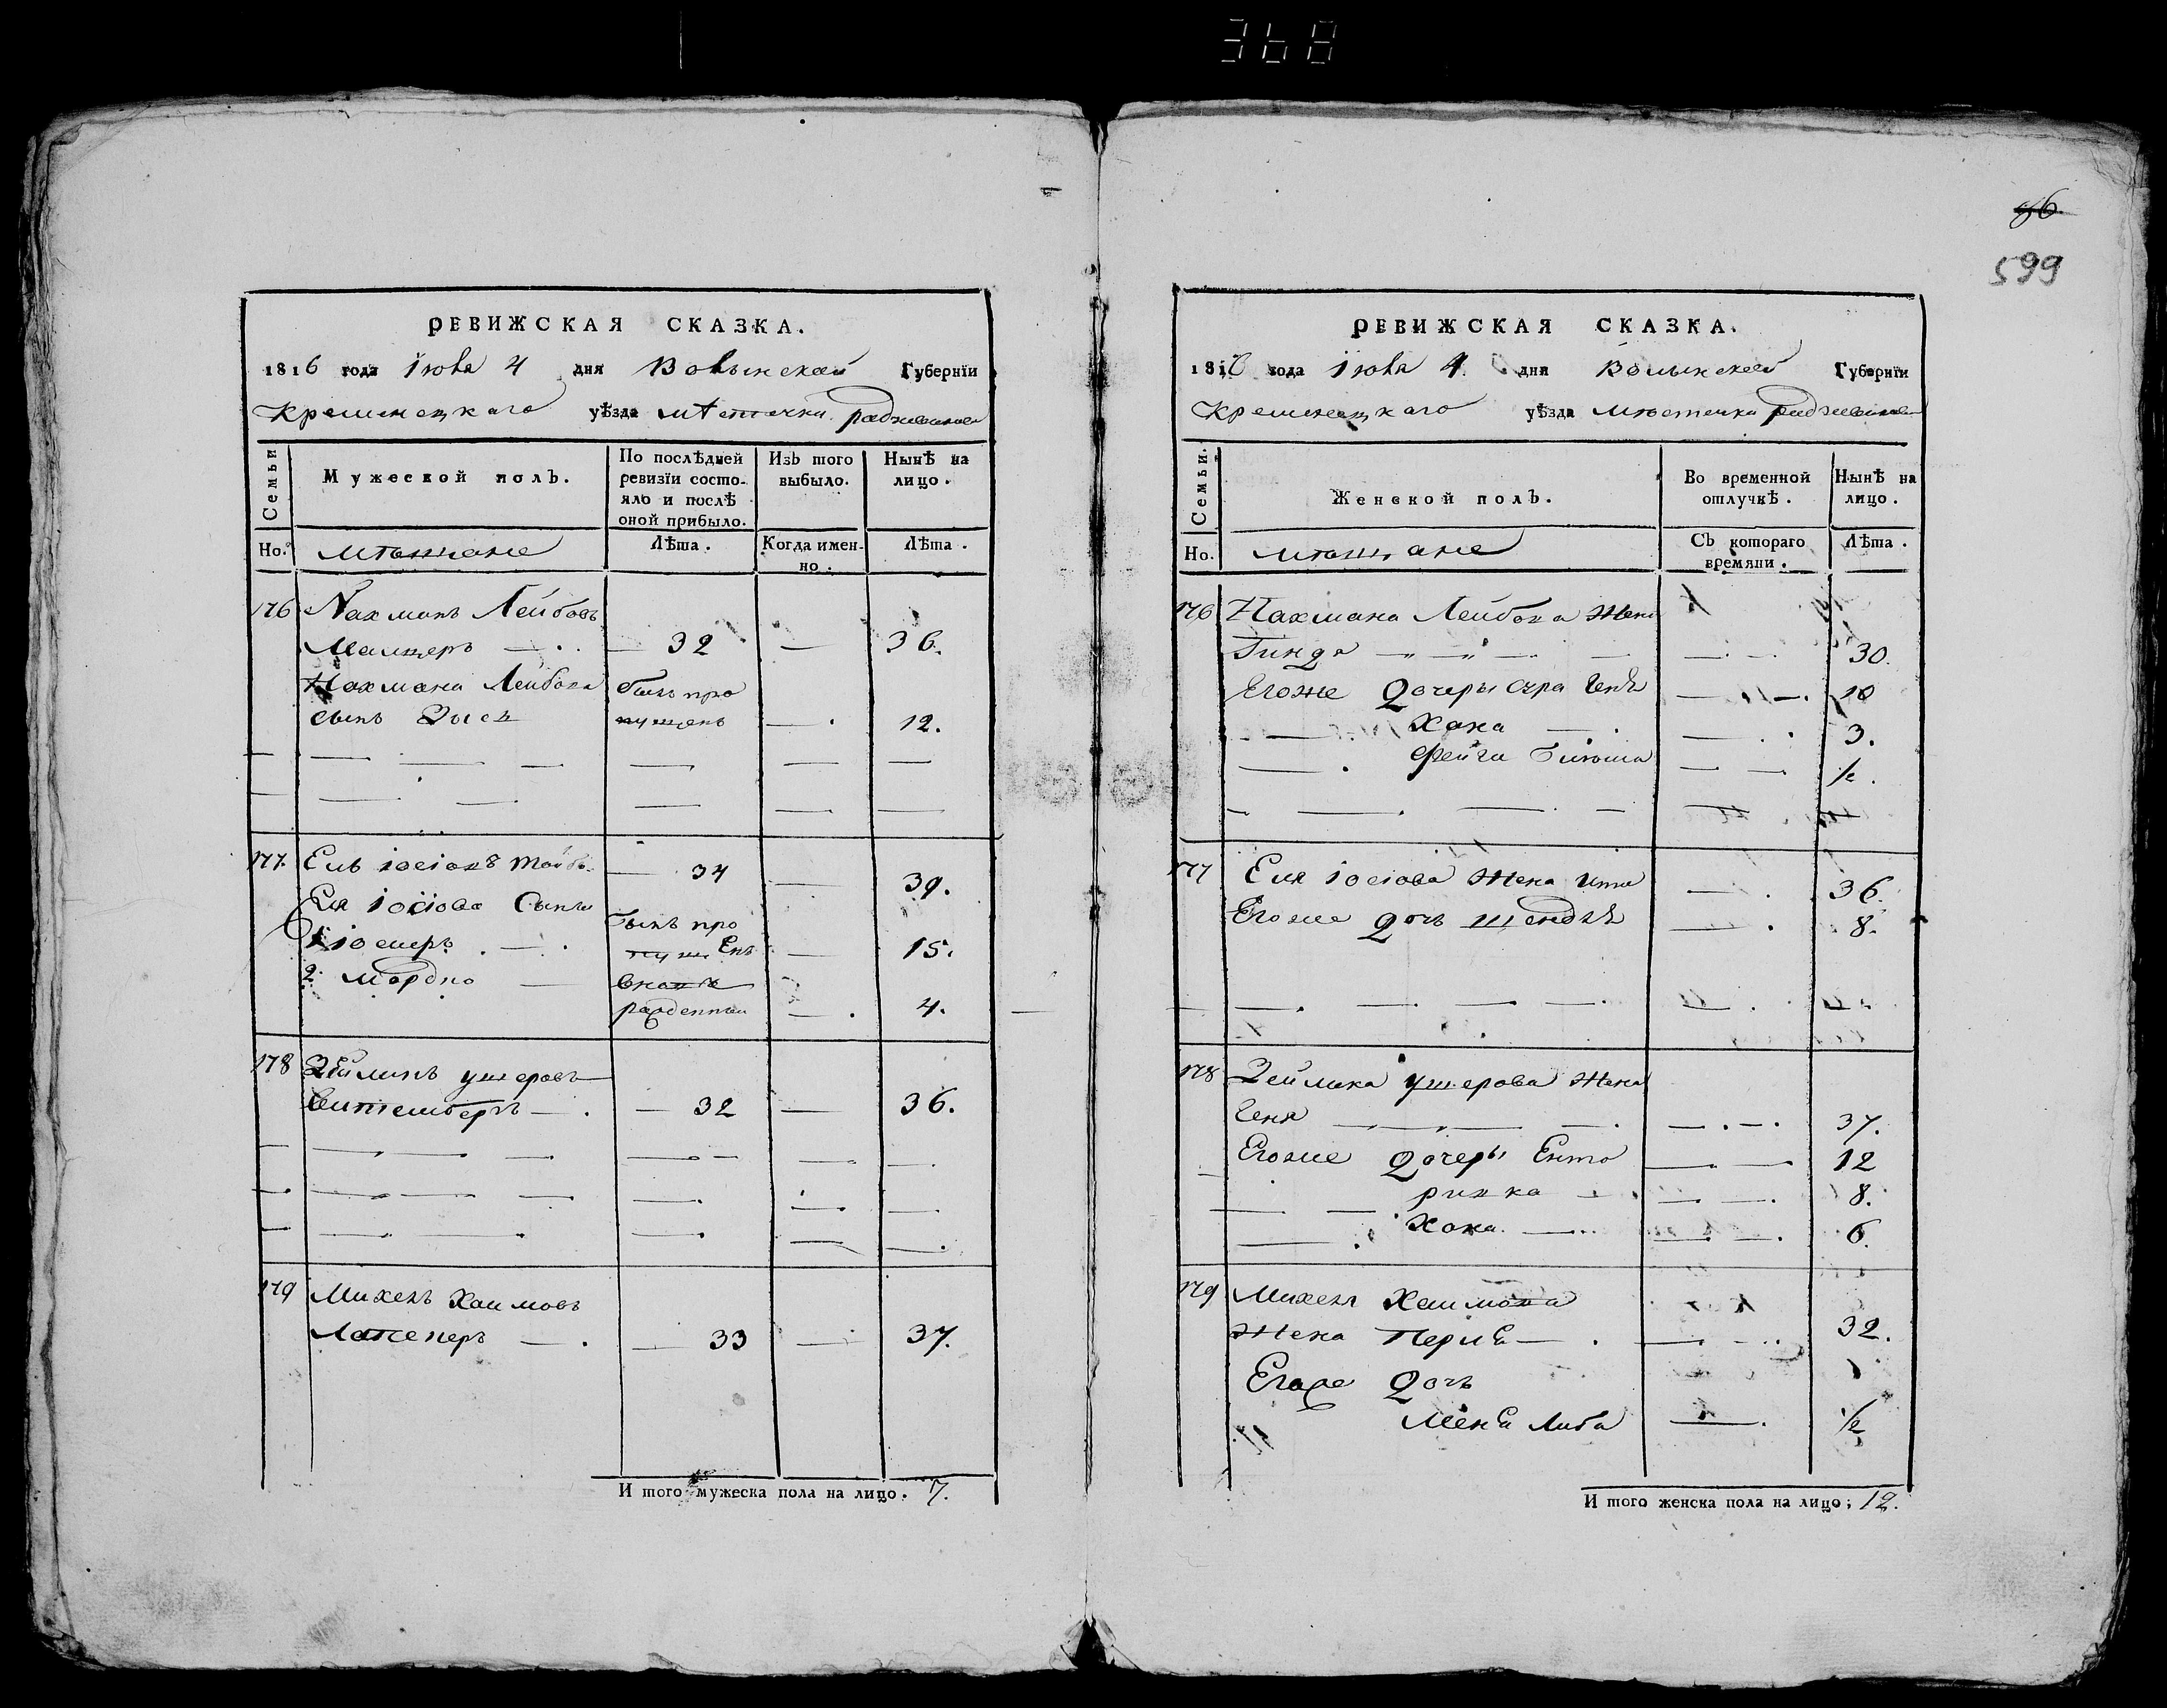 368
РЕВИЖСКАЯ СКАЗКА.
1816 года Iюня 4 дня Волынской Губернїи
Кременецкаго уѣзда мѣстечка радзивилова
Семьи
Мужеской полъ.
По послѣдней ревизїи состояло и послѣ оной прибыло.
Изъ того выбыло.
Нынѣ на лицо.
Но. мѣщане
Лѣта.
Когда именно.
Лѣта.
176 Нахманъ Лейбовъ
Мелцеръ 32 — 36.
Нахмана Лейбова былъ про
сынъ Зысь пущенъ — 12.
177 Ель Iосiовъ 34 — 39.
Еля Iосiова Сыны
1 Iосиеръ былъ пропущенъ — 15.
2. мордко вновь рожденный — 4.
178 Зейликъ ушеровъ
Витемберъ — 32 — 36.
179 Михель Хаимовъ
— 33 — 37.
И того мужеска пола на лицо. 7.
86
599
РЕВИЖСКАЯ СКАЗКА.
1816 года Iюня 4. дня Волынской Губернїи
Кременецкаго уѣзда мѣстечка радзивилова
Семьи.
Женской полъ.
Во временной отлучкѣ.
Нынѣ на лицо.
Но. мѣщане
Съ котораго времяни.
Лѣта.
176 Нахмана Лейбова жена
Гинда 30.
Егоже Дочеры Сура 10
Хана 3.
Фейга 1/2.
177 Еля Iосiова жена Ита 36.
Егоже Дочь Шендля 8.
178 Зейлика ушерова жена
Геня 37.
Егоже Дочеры Ента 12
ривка 8.
Хана 6.
179 Михеля Хаимова
жена Перля 32.
Егоже Дочь
Меня Либа 1/2
И того женска пола на лицо; 12.